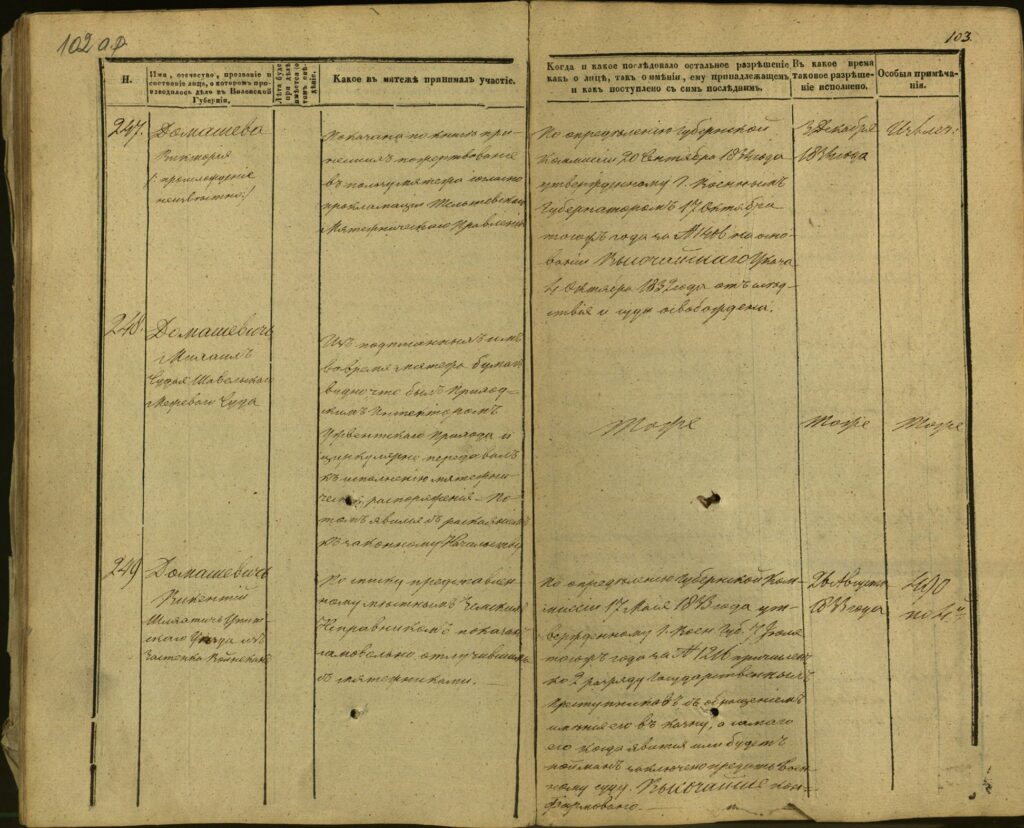 102 об
103.
Н.
Имя, отчество, прозваніе и
состояніе лица, о которомъ про-
изводилось дѣло въ Виленской
Губерніи.
Какое въ мятежѣ принималъ участіе.
Когда и какое послѣдовало остальное разрѣшеніе
какъ о лицѣ, такъ о имѣніи, ему принадлежащемъ
и какъ поступлено съ симъ послѣднимъ.
Въ какое время
таковое разрѣше-
ніе исполнено.
Особыя примѣча-
нія.
247.
Домашева
Викторія
/: происхожденіе
неизвѣстно :/
Показана по книгѣ при-
пожертвованіе
въ пользу мятежа согласно
прокламаціи Тельшевскаго
Мятежническаго Правленія
По опредѣленію Губернской
Коммисіи 20 Сентября 1832 года
утвержденному Г. Военнымъ
Губернаторомъ 17 Октября
тогожъ года за № на осно-
ваніи Высочайшаго Указа
4 Октября 1832 года отъ слѣд-
ствія и суда освобождена.
3 Декабря
1832 года
248.
Домашевичъ
Михаилъ
Судья Шавельскаго
Межеваго Суда
Изъ подписанныхъ имъ
вовремя мятежа бумагъ
видно что былъ Приход-
скимъ Инспекторомъ
Прихода и
циркулярно передавалъ
къ исполненію мятежни-
ческія распоряженія – По-
томъ явился съ раскаяніемъ
къ законному Начальству
Тоже
Тоже
Тоже
249
Домашевичъ
Викентій
Шляхтичъ
Уѣзда изъ
Застенка
По списку представлен-
ному мѣстнымъ Земскимъ
Исправникомъ показанъ
самовольно отлучившимся
съ мятежниками. –
По опредѣленію Губернской Ком-
мисіи 17 Мая 1833 года ут-
вержденному Г. Воен. Губ. 7 Іюля
тогожъ года за № 1216 причисленъ
ко 2 разряду Государственныхъ
преступниковъ съ обращеніемъ
имѣнія его въ казну, а самаго
его когда явится или будетъ
пойманъ заключено предать Воен-
ному суду. Высочайше кон-
фирмовано. –
26 Августа
1833 года